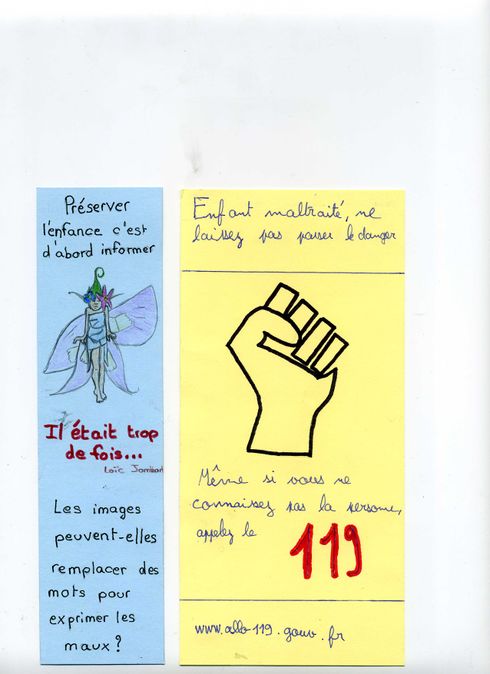 Préserver
l'enfance c'est
d'abord informer
Il était trop
de fois...
Loïc Jombart
Les images
peuvent-elles
remplacer des
mots pour
exprimer les
maux ?
Enfant maltraité, ne
laissez pas passer le danger
Même si vous ne
connaissez pas la personne,
appelez le
119
www.allo-119.gouv.fr